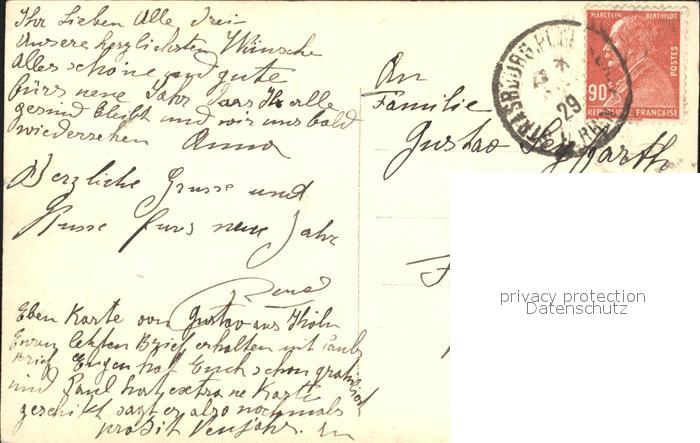 Ihr Lieben Alle Drei
Unsere herzlichsten Wünsche
Alles schöne und gute
fürs neue Jahr dass Ihr alle
gesund bleibt und wir uns bald
wiedersehen Anna
Herzliche Grusse und
Kusse furs neue Jahr
René
Eben Karte von Gustav aus Thöln
letzten Brief erhalten mit Pauls
Brief Eugen hat Euch schon
und Paul hat extra ne Karte
geschikt sagt er also nochmals
prosit Neujahr.
An
Familie
Gustav
STRASBOURG
29
RHIN
MARCELIN BERTHELOT
POSTES
90c
REPUBLIQUE FRANCAISE
privacy protection
Datenschutz